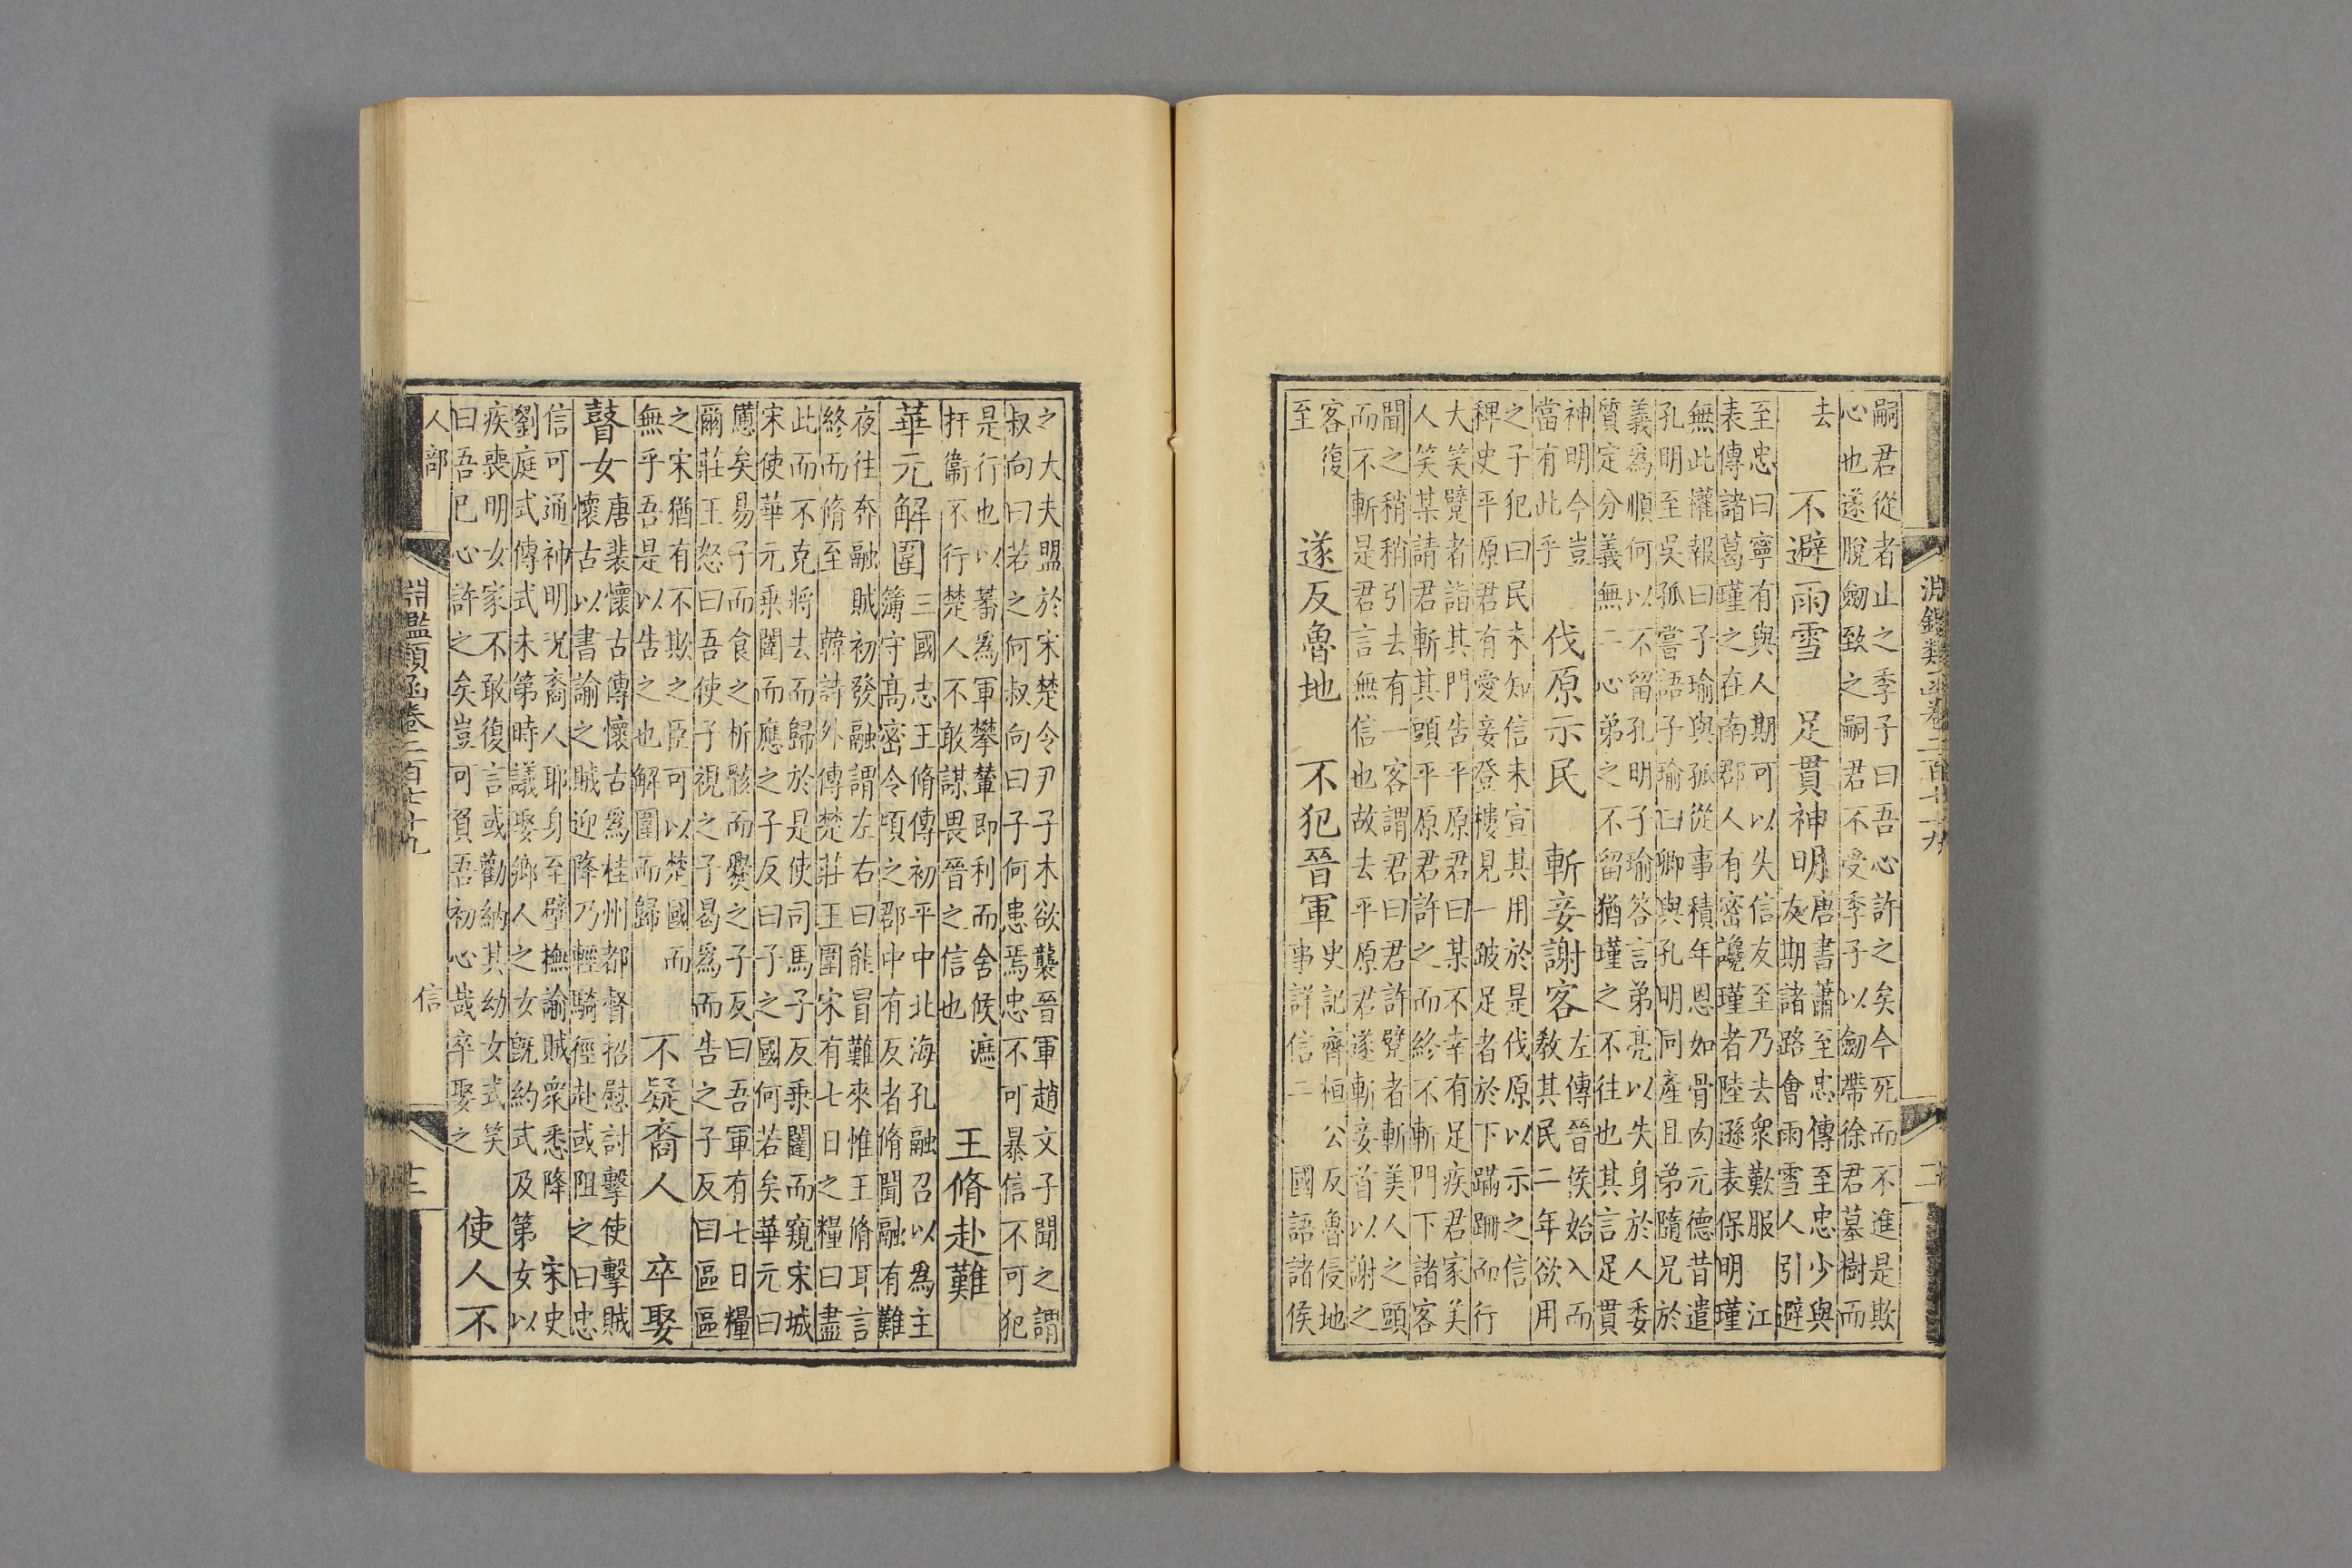 淵鑑類函卷二百七十九 二
嗣君從者止之季子曰吾心許之矣今死而不進是欺
心也遂脫劒致之嗣君不受季子以劒帶徐君墓樹而
去
不避雨雪 足貫神明
唐書蕭至忠傳至忠少與
友期諸路會雨雪人引避
至忠曰寧有與人期可以失信友至乃去衆歎服 江
表傳諸葛瑾之在南郡人有密讒瑾者陸遜表保明瑾
無此懽報曰子瑜與孤從事積年恩如骨肉元德昔遣
孔明至吳孤嘗語子瑜曰卿與孔明同產且弟隨兄於
義爲順何以不留孔明子瑜答言弟亮以失身於人委
質定分義無二心弟之不留猶瑾之不往也其言足貫
神明今豈
當有此乎
伐原示民 斬妾謝客
左傳晉侯始入而
教其民二年欲用
之子犯曰民未知信未宣其用於是伐原以示之信
稗史平原君有愛妾登樓見一跛足者於下蹣跚而行
大笑躄者詣其門告平原君曰某不幸有足疾君家美
人笑某請君斬其頭平原君許之而終不斬門下諸客
聞之稍稍引去有一客謂君曰君許躄者斬美人之頭
而不斬是君言無信也故去平原君遂斬妾首以謝之
客復
至
遂反魯地 不犯晉軍
史記齊桓公反魯侵地
事詳信二 國語諸侯
之大夫盟於宋楚令尹子木欲襲晉軍趙文子聞之謂
叔向曰若之何叔向曰子何患焉忠不可暴信不可犯
是行也以蕃爲軍攀輦即利而舍候遮
扞衞不行楚人不敢謀畏晉之信也
王脩赴難
華元解圍
三國志王脩傳初平中北海孔融召以爲主
簿守高密令頃之郡中有反者脩聞融有難
夜往奔融賊初發融謂左右曰能冒難來惟王脩耳言
終而脩至 韓詩外傳楚莊王圍宋有七日之糧曰盡
此而不克將去而歸於是使司馬子反乘闉而窺宋城
宋使華元乘闉而應之子反曰子之國何若矣華元曰
憊矣易子而食之析骸而爨之子反曰吾軍有七日糧
爾莊王怒曰吾使子視之子曷爲而告之子反曰區區
之宋猶有不欺之臣可以楚國而
無乎吾是以告之也解圍而歸
不疑裔人 卒娶
瞽女
唐裴懷古傳懷古爲桂州都督招慰討擊使擊賊
懷古以書諭之賊迎降乃輕騎徑赴或阻之曰忠
信可通神明況裔人耶身至壁撫諭賊衆悉降 宋史
劉庭式傳式未第時議娶鄉人之女旣約式及第女以
疾喪明女家不敢復言或勸納其幼女式笑
曰吾已心許之矣豈可負吾初心哉卒娶之
使人不
人部 信
淵鑑類函卷二百七十九 三